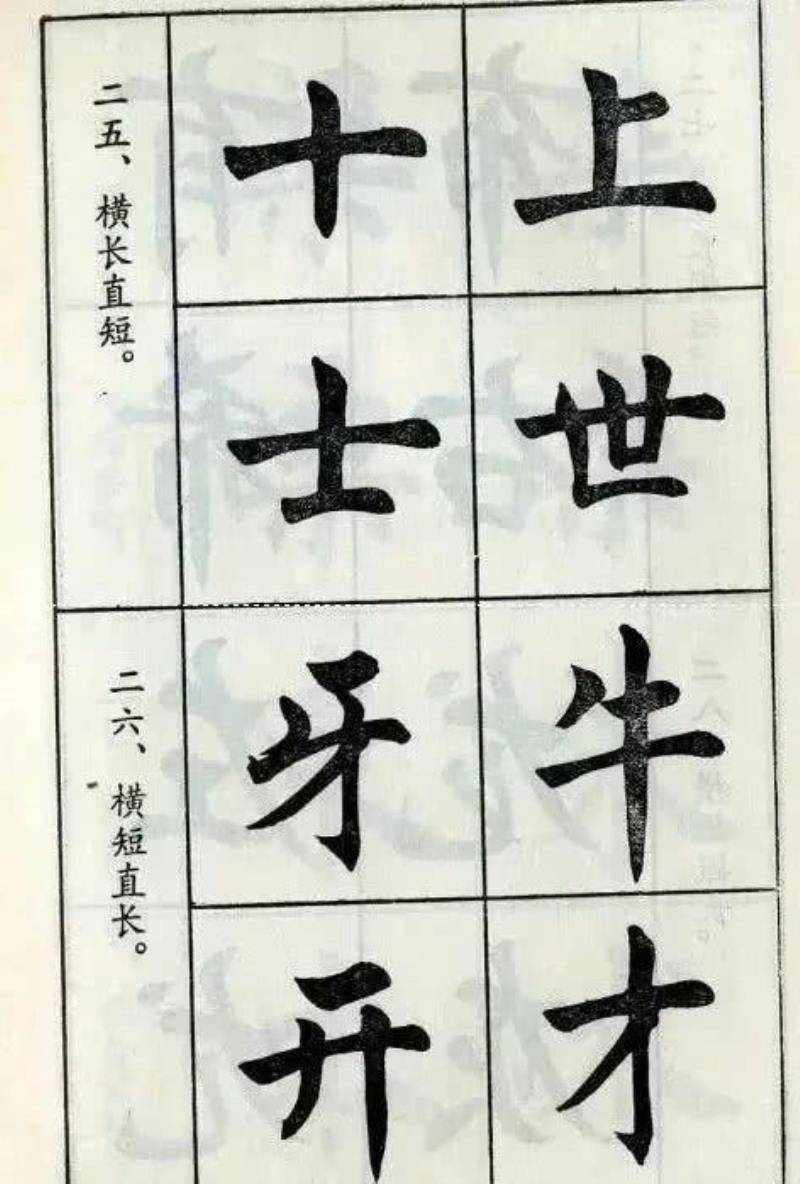 二五、横长直短。
十
上
士
世
二六、横短直长。
牙
牛
开
才